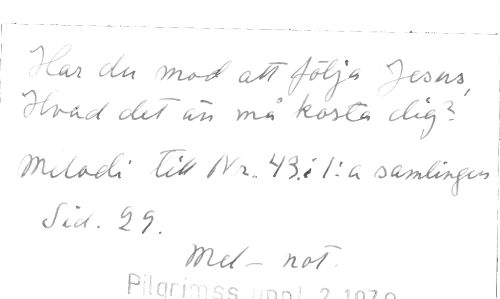 Har du mod att följa Jesus,
Hvad det än må kosta dig?
Melodi till Nr. 43. i 1:a samlingen
Sid. 29.
Mel- not.
Pilgrimss uppl 2 1979